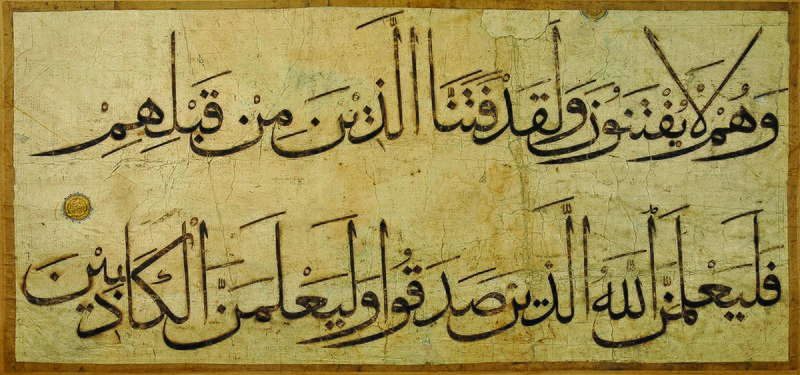 وَهُمْ لَا يُفْتَنُونَ وَلَقَدْ فَتَنَّا الَّذِينَ مِنْ قَبْلِهِمْ
فَلَيَعْلَمَنَّ اللَّهُ الَّذِينَ صَدَقُوا وَلَيَعْلَمَنَّ الْكَاذِبِينَ